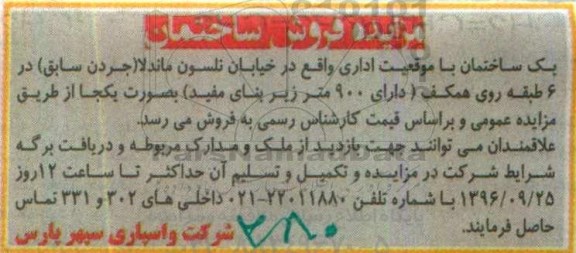 مزایده فروش ساختمان
یک ساختمان با موقعیت اداری واقع در خیابان نلسون ماندلا(جردن سابق) در
۶ طبقه روی همکف ( دارای ۹۰۰ متر زیر بنای مفید) بصورت یکجا از طریق
مزایده عمومی و براساس قیمت کارشناس رسمی به فروش می رسد.
علاقمندان می توانند جهت بازدید از ملک و مدارک مربوطه و دریافت برگه
شرایط شرکت در مزایده و تکمیل و تسلیم آن حداکثر تا ساعت ۱۲روز
۱۳۹۶/۰۹/۲۵ با شماره تلفن ۲۲۰۱۱۸۸۰-۰۲۱ داخلی های ۳۰۲ و ۳۳۱ تماس
حاصل فرمایند.
شرکت واسپاری سپهر پارس
۳۸۰
ParsNamadData